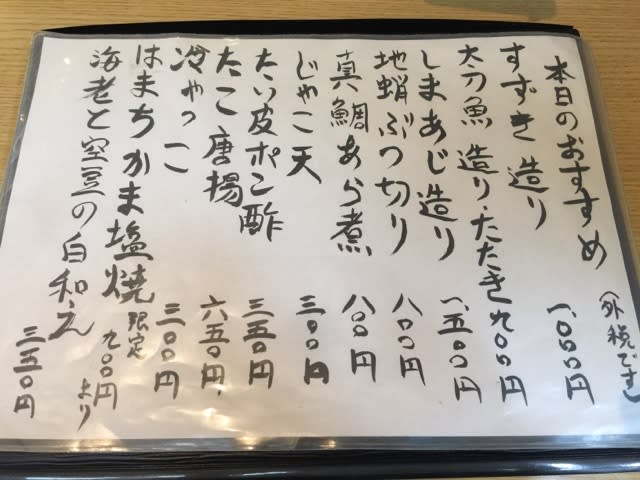 本日のおすすめ
(外税です)
すずき造り 一、〇〇〇円
太刀魚造り・たたき 九〇〇円
しまあじ造り 一、五〇〇円
地蛸ぶつ切り 八〇〇円
真鯛あら煮 八〇〇円
じゃこ天 三〇〇円
たい皮ポン酢 三五〇円
たこ唐揚 六五〇円
冷やっこ 三〇〇円
はまちかま塩焼 限定 九〇〇円より
海老と空豆の白和え 三五〇円